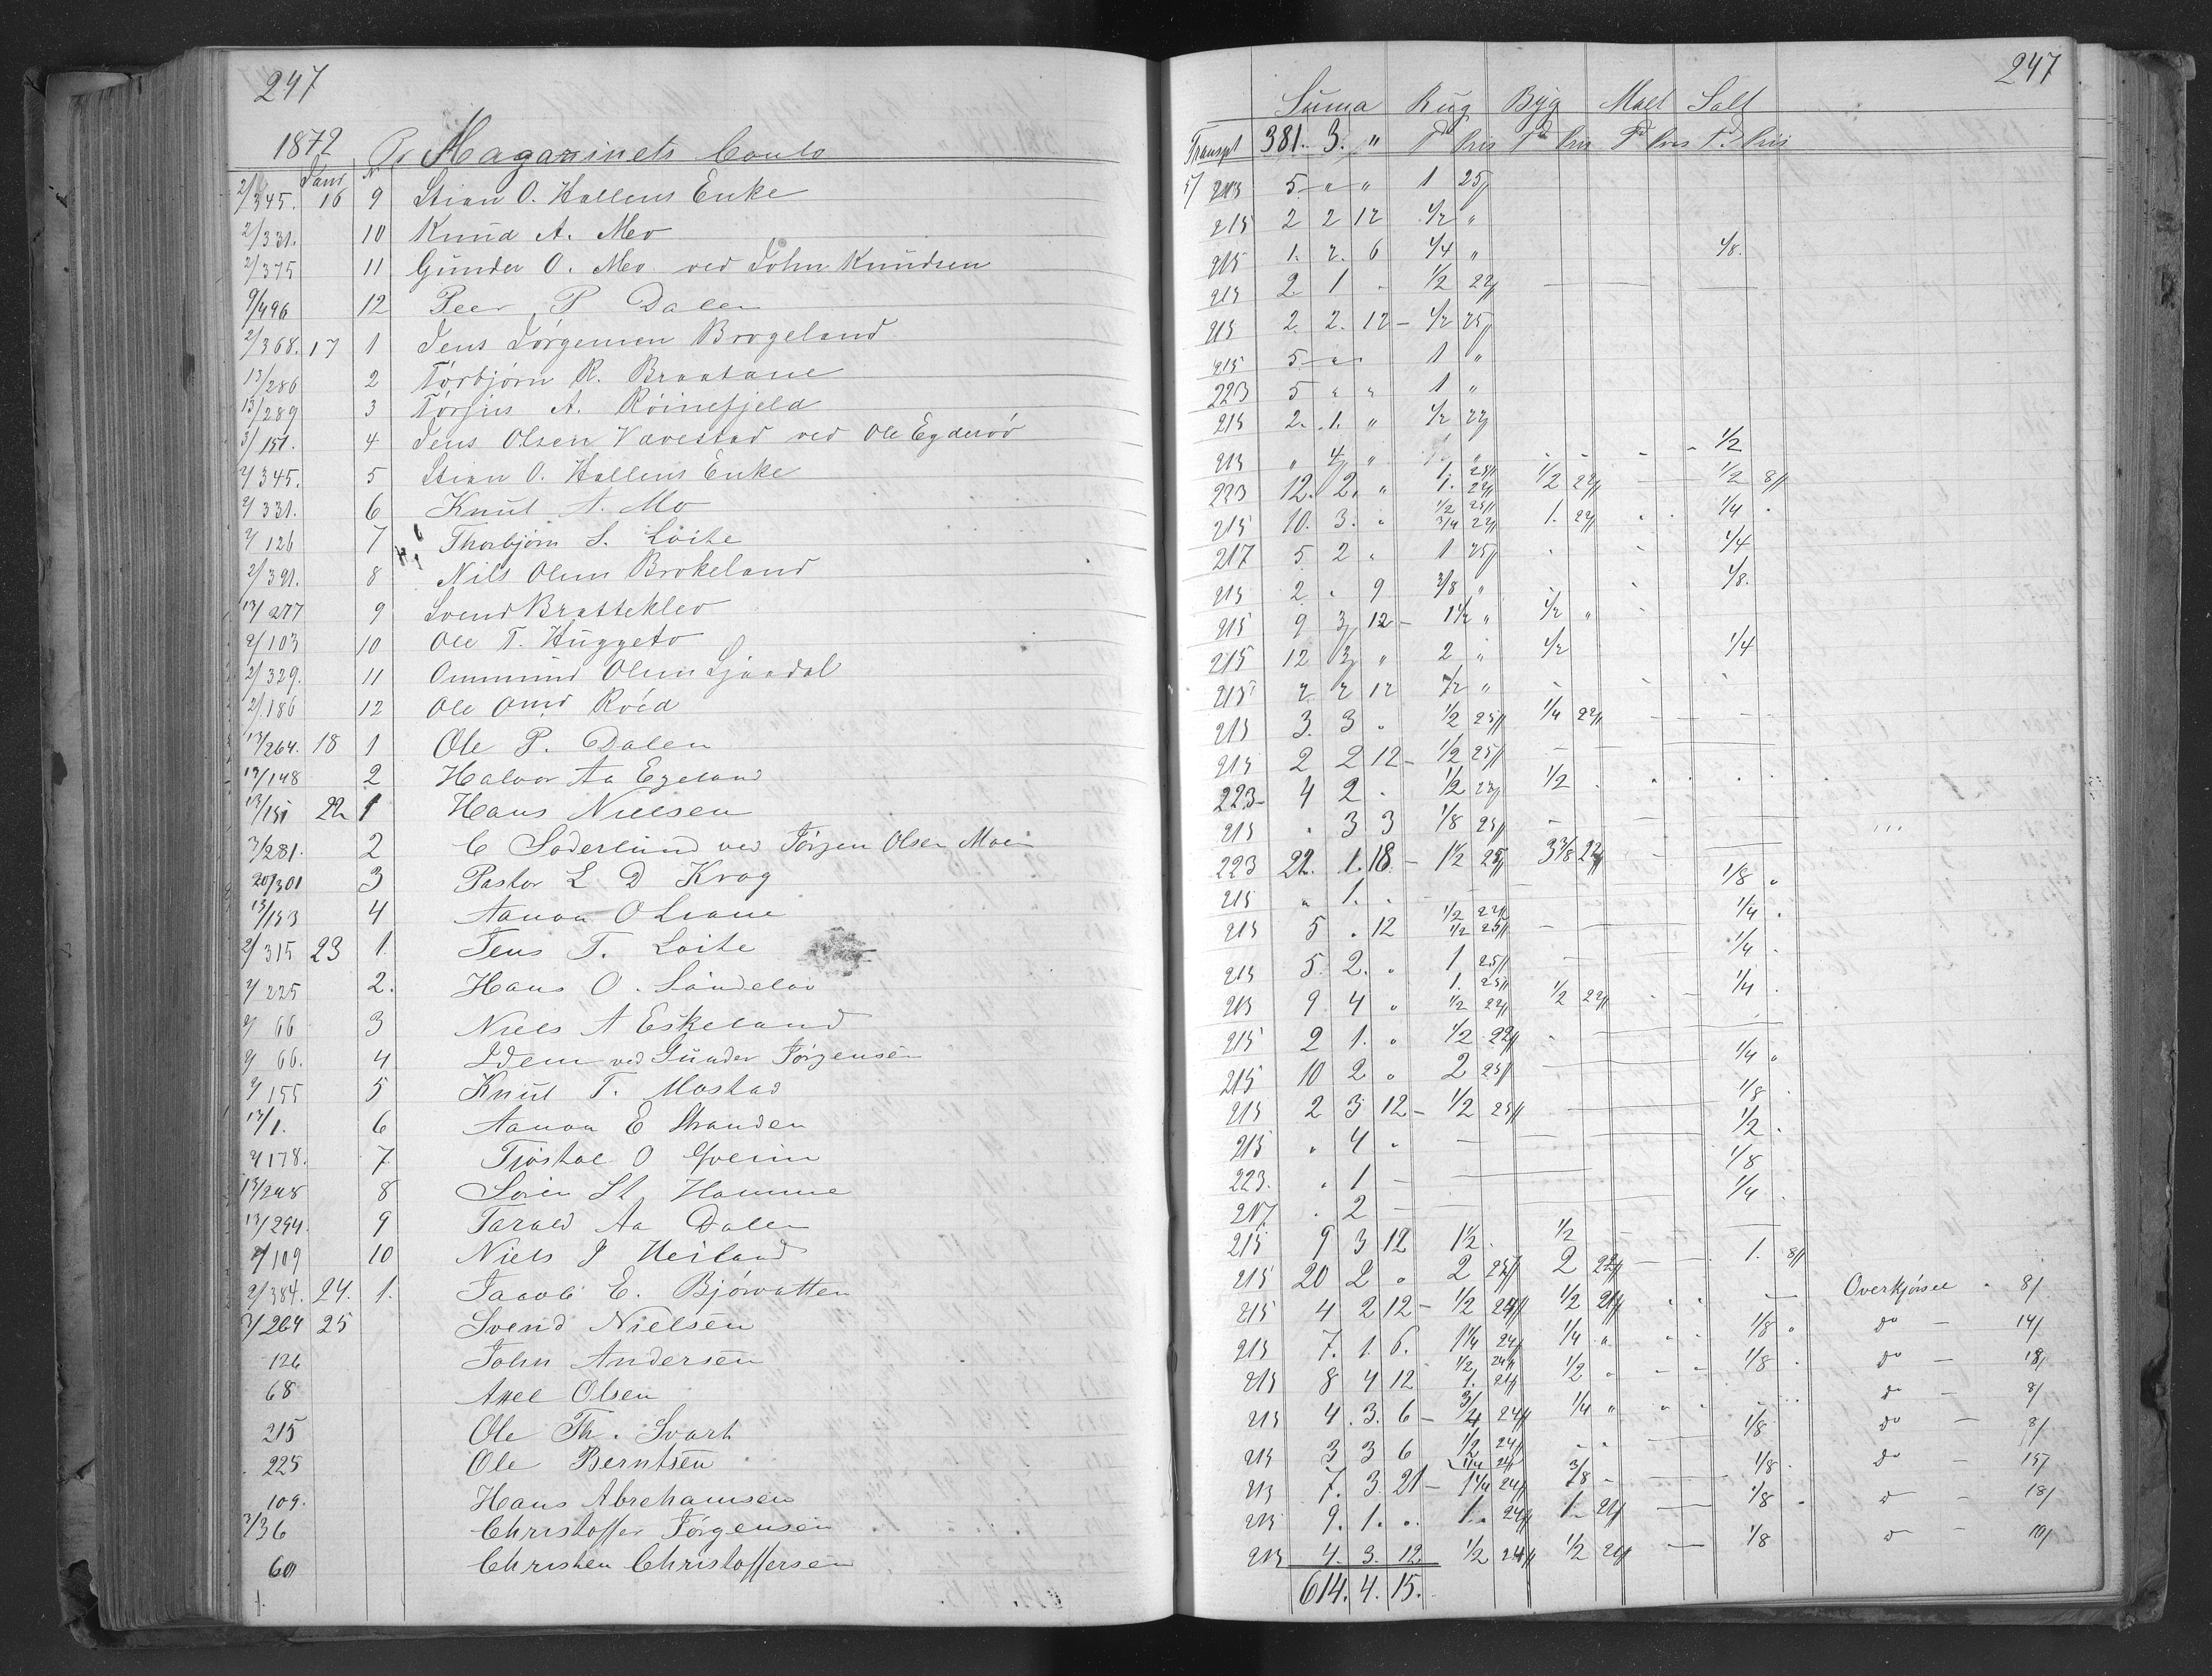 247
1872 Pr Magazinets Conto
Janr N
2/345. 16 9 Stian O. Hallens Enke
2/331. 10 Knud A. Mo
2/375 11 Gunder O. Mo ved John Knudsen
9/496 12 Peer P Dalen
2/368. 17 1 Jens Jørgensen Brogeland
13/286 2 Torbjørn R. Braatane
13/289 3 Torjus A. Röinefjeld
3/151. 4 Jens Olsen Vavestad ved Ole Egderöd
2/345. 5 Stian O. Hallens Enke
2/331. 6 Knut A. Mo
2/126 7 Thorbjörn S. Loite
2/391. 8 Nils Olsen Brokeland
13/277 9 Svend Bratteklev
2/103 10 Ole T. Huggeto
2/329. 11 Ommund Olsen Ljaadal
2/186 12 Ole Omd Röed
13/264. 18 1 Ole P. Dalen
13/148 2 Halvor Aa Egeland
13/151 22 1 Hans Nielsen
3/281. 2 C Söderlund ved Jörgen Olsen Moen
20/301 3 Pastor L D Krog
13/153 4 Aanon O Liane
2/315 23 1. Jens T. Loite
2/225 2. Hans O. Sandelöv
2/66 3 Niels A Eskeland
2/66. 4 Idem ved Gunder Jörgensen
2/155 5 Knut T. Mostad
13/1. 6 Aanon E Stranden
2/178. 7 Tjöstol O
13/248 8 Sören St Hamme
13/294. 9 Tarald Aa Dalen
2/109 10 Niels J Heiland
2/384. 24. 1. Jacob E. Björvatten
3/264 25 Svend Nielsen
126 John Andersen
68 Axel Olsen
215 Ole Th. Svart
225 Ole Berntsen
109. Hans Abrahamsen
3/36 Christoffer Jörgensen
60 Christen Christoffersen
247
Suma Rug Byg Malt Salt
Transpt 381. 3. " Td Pris Td Pris Td Pris Td Pris
213 5 " " 1 25/
215 2 2 12 1/2 "
215 1. 2. 6 1/4 " 1/8.
215 2. 1 - 1/2 22/
215 2. 2. 12 - 1/2 25/
215 5 - " 1 "
223 5 " " 1 "
215 2. 1. " 1/2 22/
213 " 4 " 1/2
223 12. 2. " 1. 25/ 1. 22/ 1/2 22/ 1/2 8/
215 10. 3. " 1/2 25/ 3/4 22/ 1. 22/ 1/4
217 5 2 " 1 25/ 1/4
215 2 . 9 3/8 " 1/8.
215 9 3 12 - 1 1/2 " 1/2 "
215 12 3 " 2 " 1/2 1/4
215 2 2 12 1/2 "
215 3. 3 . 1/2 25/ 1/4 22/
215 2 2 12 - 1/2 25/
223 - 4 2 . 1/2 23/ 1/2
215 . 3 3 1/8 25/
223 22. 1. 18 - 1 1/2 25/ 3 3/8 22/
215 " 1. . 1/8 "
215 5 . 12 1/2 22/ 1/2 25/ 1/4
215 5. 2. . 1 25/ 1/4
213 9 4 " 1. 25/ 1/2 22/ 1/2 22/ 1/4
215 2 1. " 1/2 22/
215 10 2 " 2 25/ 1/4 "
215 2 3 12 - 1/2 25/ 1/8
215 . 4 . 1/2
223. . 1 - 1/8
217 . 2 - 1/4
215 9 3 12 1 1/2. 1/2
215 20 2 " 2 25/ 2 22/ 1. 8/
215 4 2 12 - 1/2 24/ 1/2 21/ Overkjörsel 8/
215 7. 1. 6. 1 1/4 24/ 1/4 " 1/8 " do - 14/
215 8 4 12 1/2 24/ 1. 21/ 1/2 " 1/8 do - 18/
215 4. 3. 6 - 3/4 24/ 1/4 " do - 8/
215 3 3 6 1/2 24/ 1/8 do - 8/
213 7. 3. 21 - 1 1/4 24/ 3/8 - 1/8 do - 15/
213 9. 1. . 1. 24/ 1. 21/ 1/8 do - 18/
213 4. 3. 12 1/2 24/ 1/2 21/ 1/8 do - 10/
614. 4. 15.